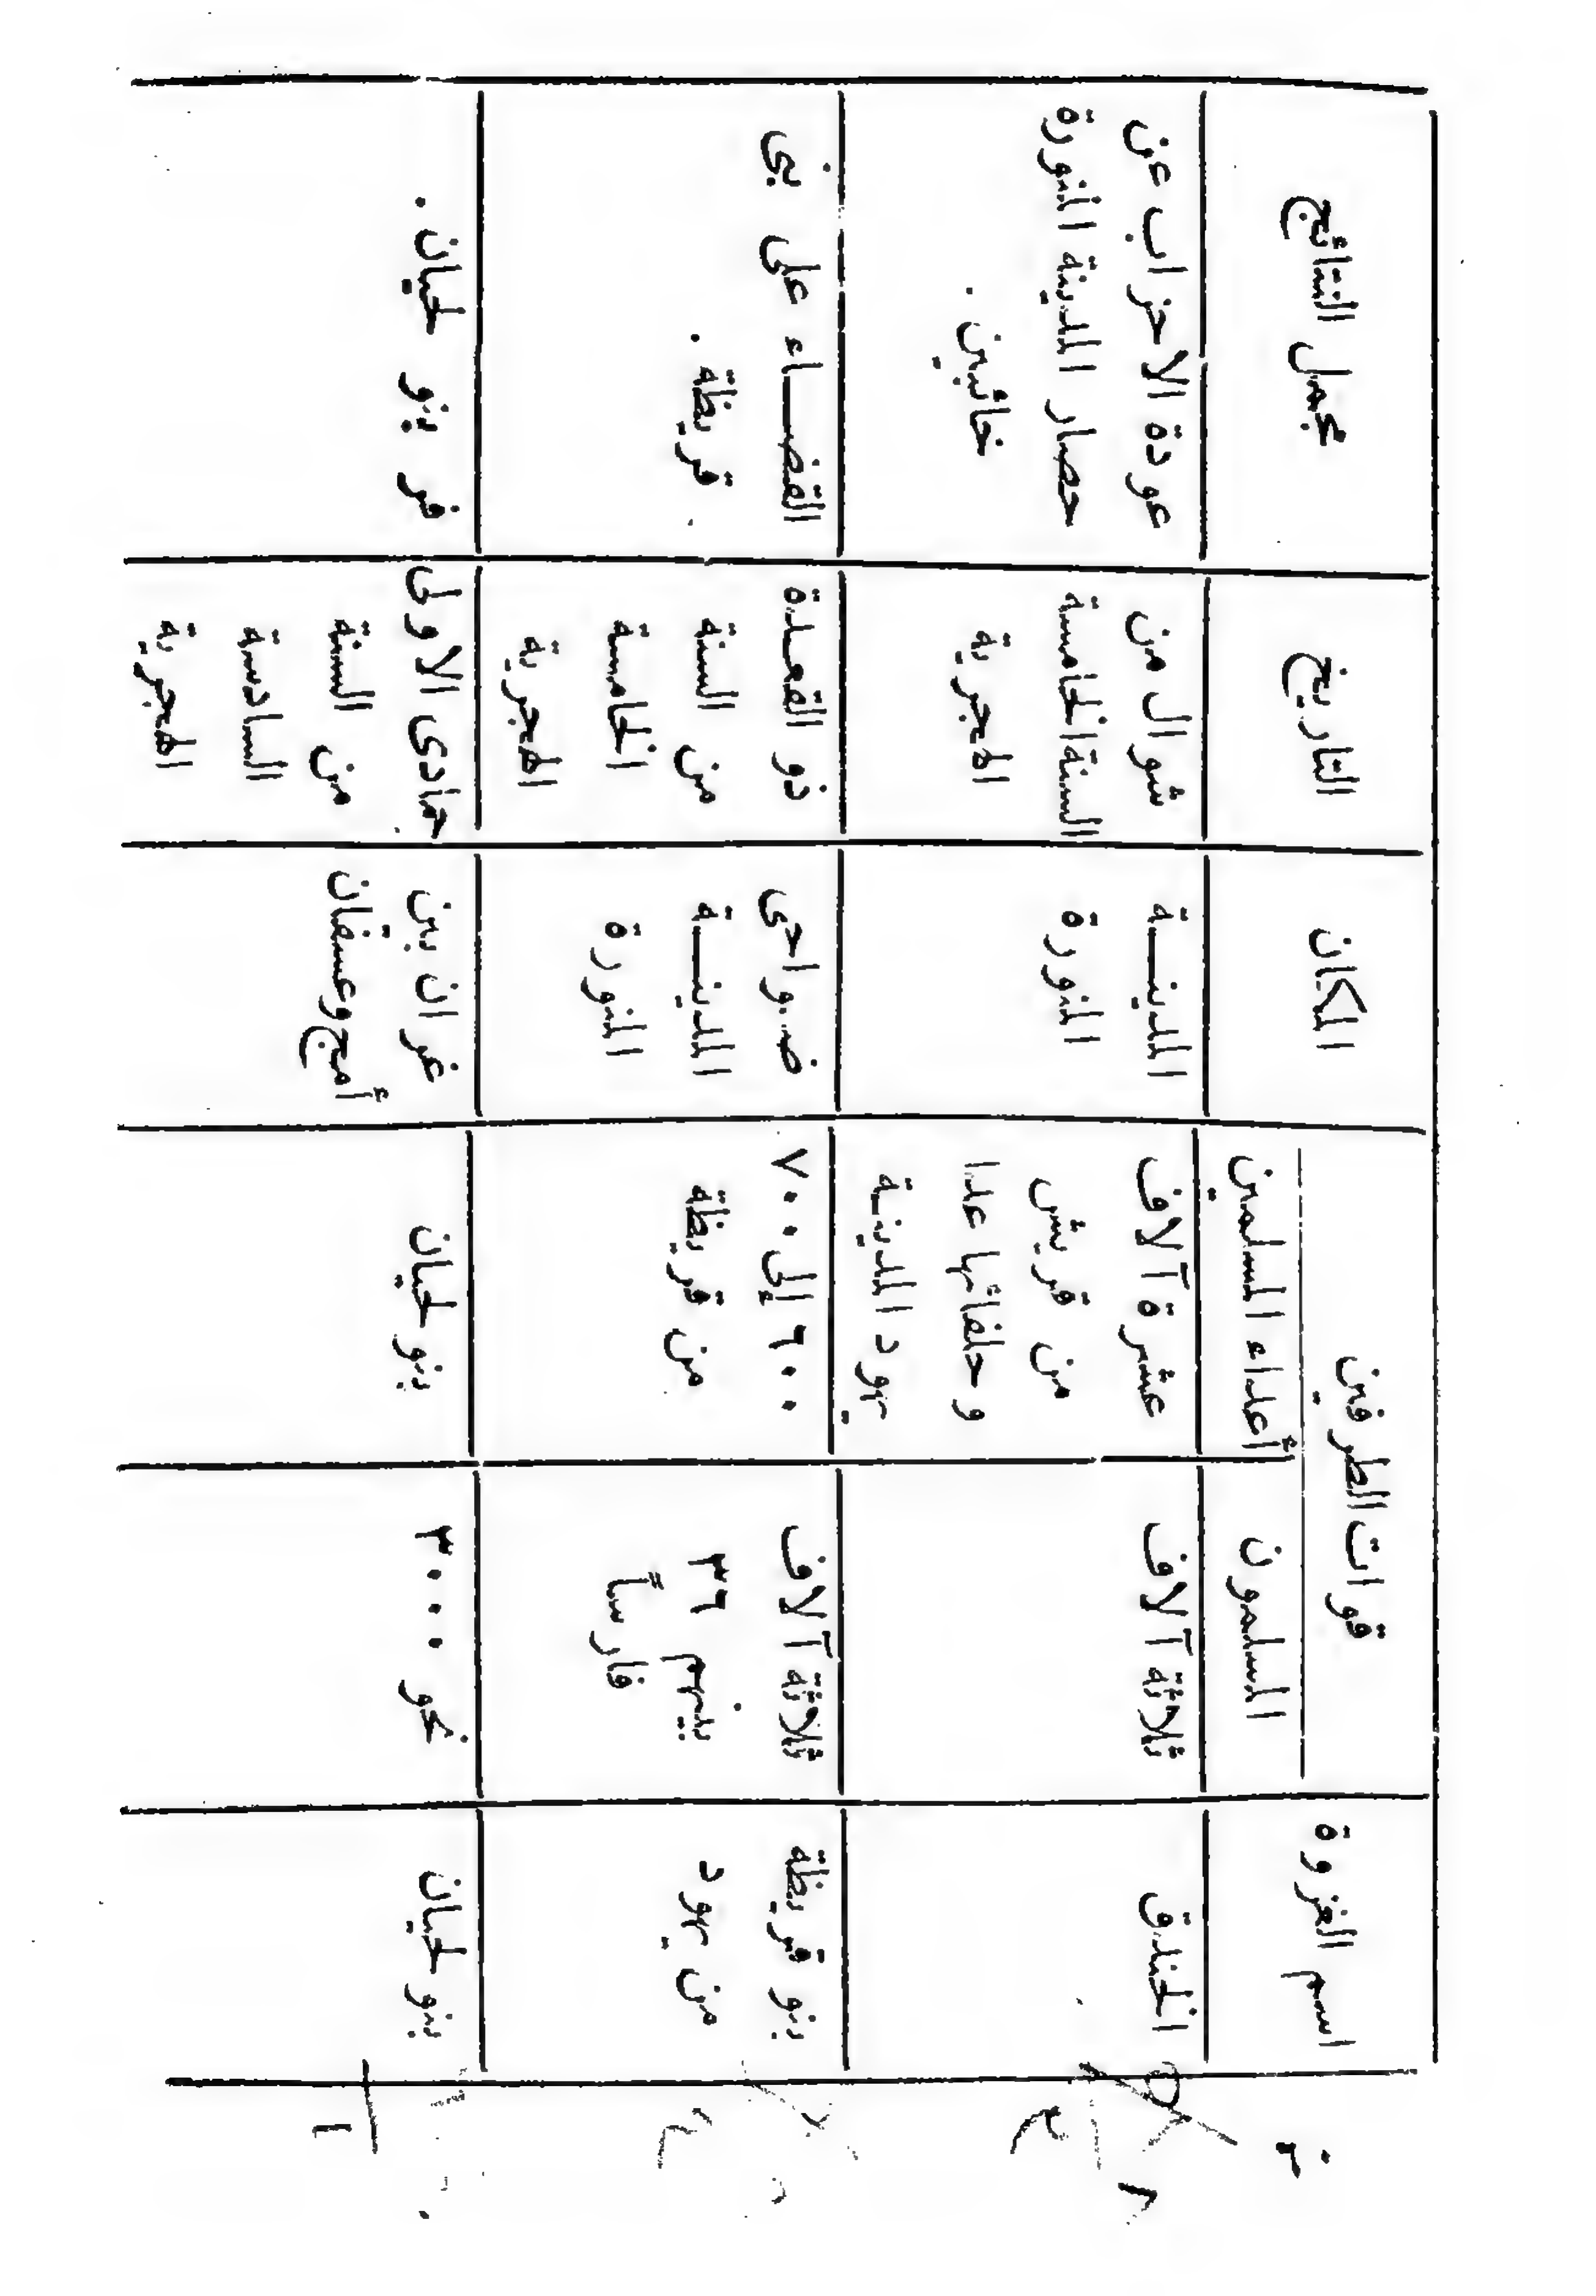 اسم الغزوة
قوات الطرفين
المسلمون
أعداء المسلمين
المكان
التاريخ
مجمل النتائج
الخندق
ثلاثة آلاف
عشرة آلاف
من قريش
وحلفائها عدا
يهود المدينة
المدينـــة
المنورة
شوال من
السنة الخامسة
الهجرية
عودة الاحزاب عن
حصار المدينة المنورة
خائبين .
بنو قريظة
من يهود
ثلاثة آلاف
بينهم ٣٦
فارساً
٦٠٠ إلى ٧٠٠
من قريظة
ضواحى
المدينـــة
المنورة
ذو القعدة
من السنة
الخامسة
الهجرية
القضـــاء على بنى
قريظة .
بنو لحيان
نحو ٣٠٠٠
بنو لحيان
غران بين
أمج وعسفان
جمادى الاولى
من السنة
السادسة
الهجرية
فر بنو لحيان .